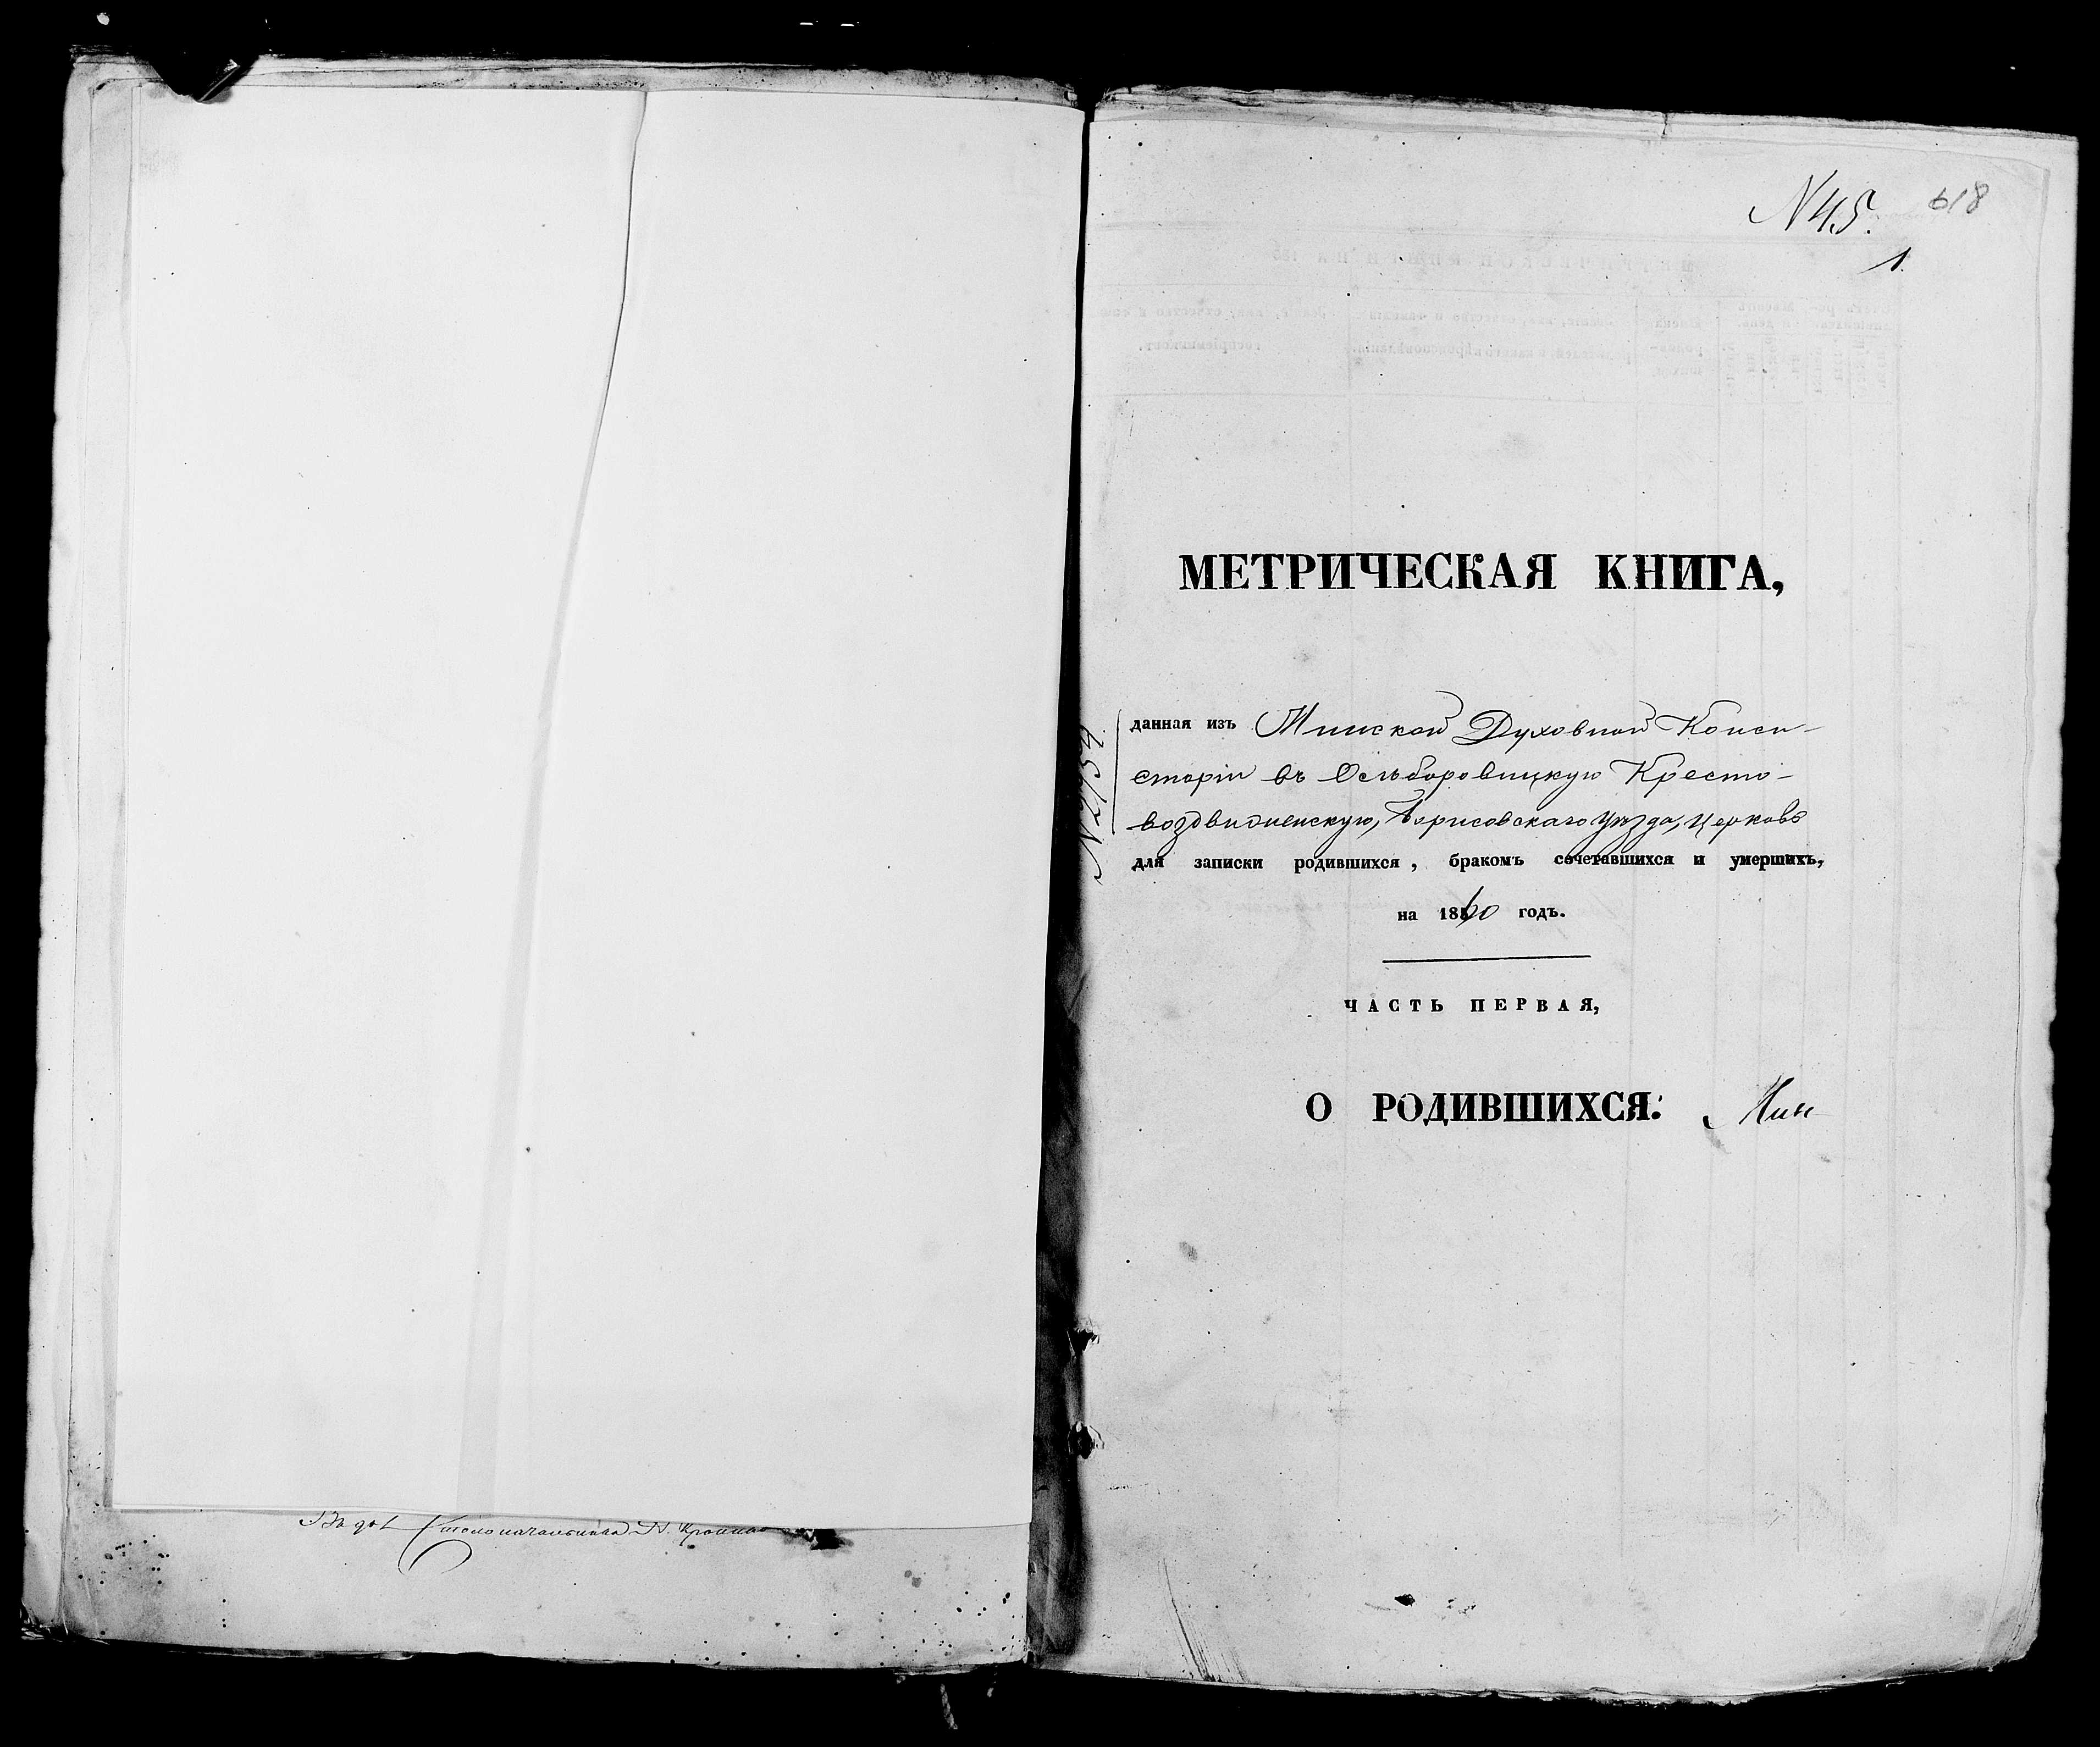 N 45. 618
1.
МЕТРИЧЕСКАЯ КНИГА,
N 2954
данная изъ Минской Духовной Конси-
сторіи въ Осльборовицкую Кресто-
воздвиженскую, Борисовскаго уѣзда, церковь
для записки родившихся, бракомъ сочетавшихся и умершихъ,
на 1860 годъ.
ЧАСТЬ ПЕРВАЯ,
О РОДИВШИХСЯ: Мин
Столоначальника